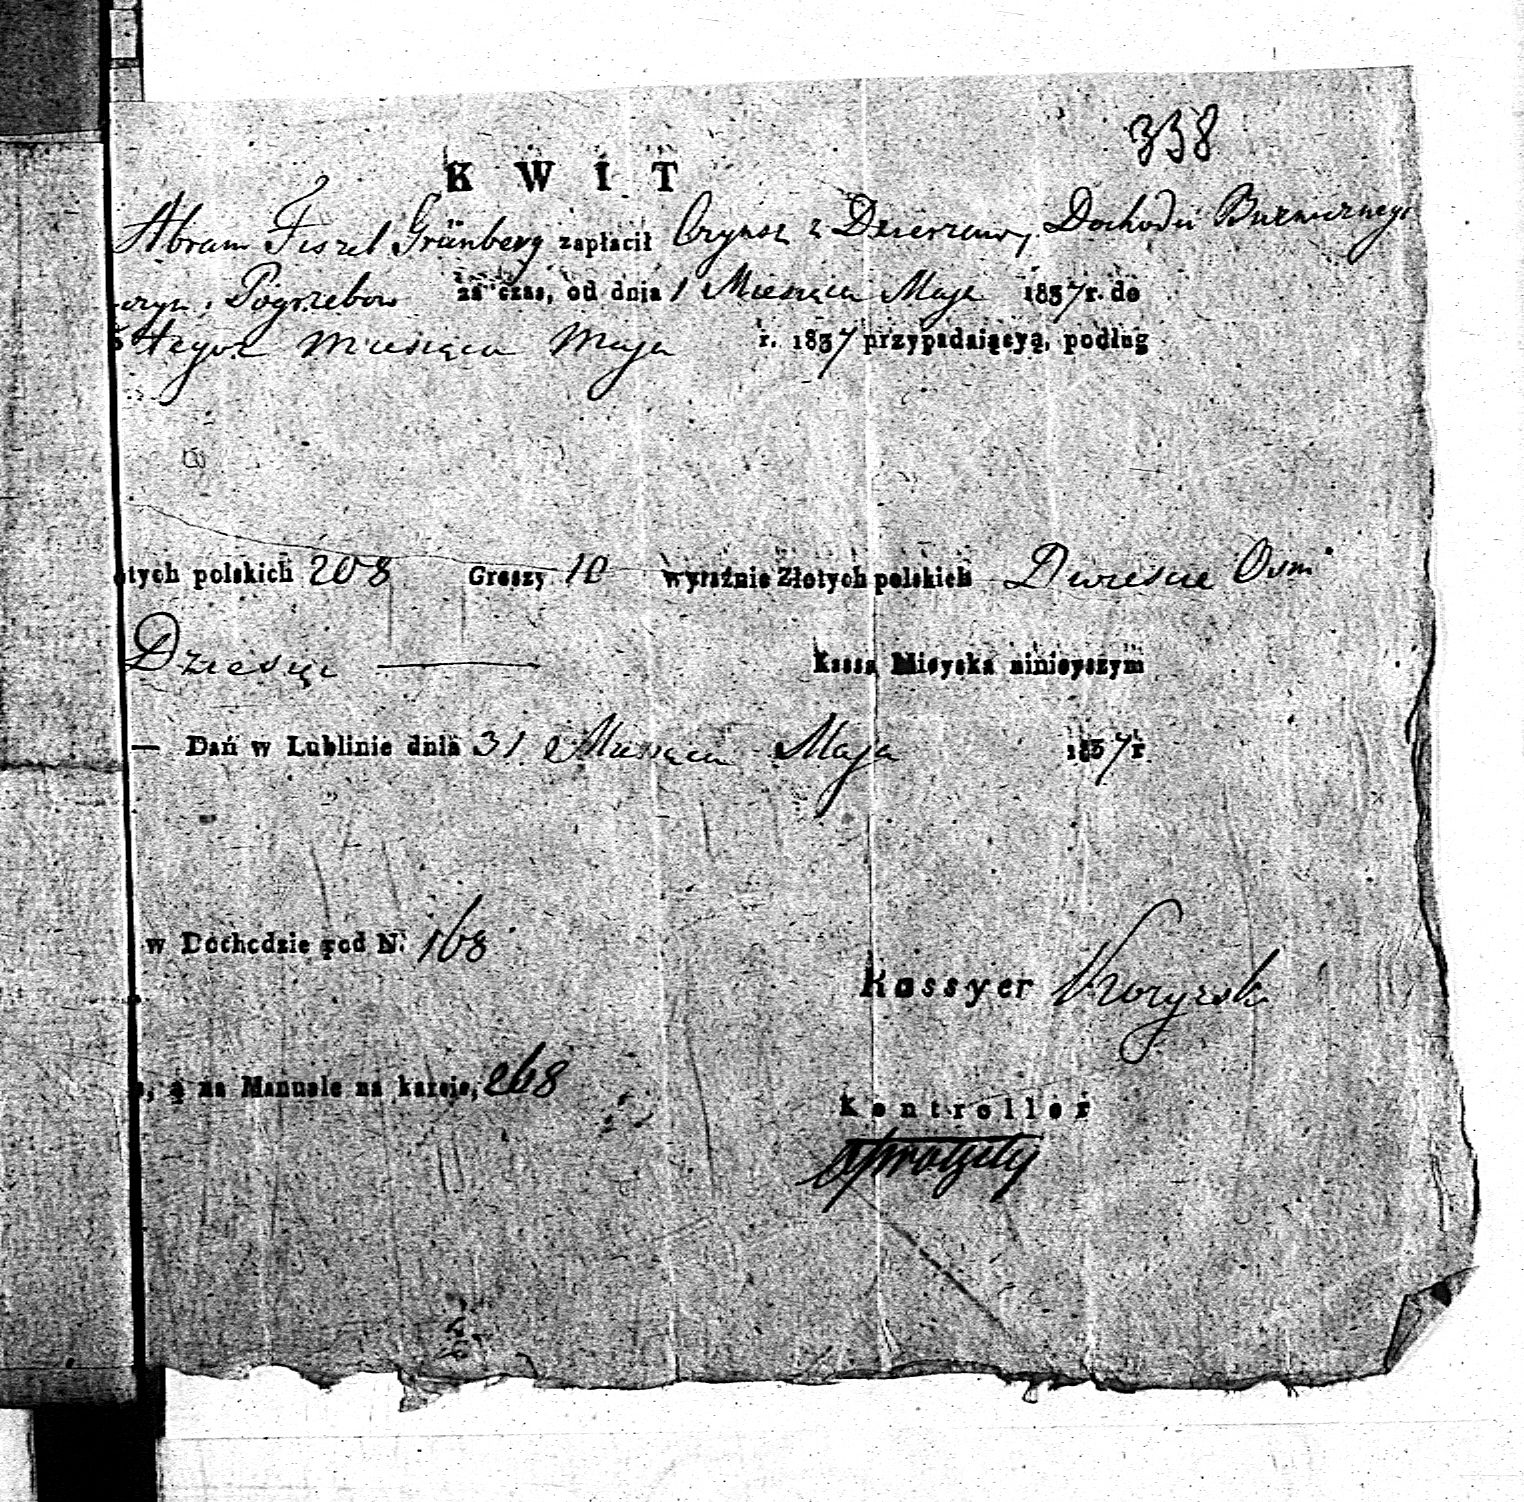 338
KWIT
Abram Fiszel Grünberg zapłacił Czynsz z Dzierzawy Dochodu Buznicznego
Pogrzebow za czas, od dnia 1 Miesiąca Maja 1837 r. do
tegoż Miesiąca Maja r. 1837 przypadaiącyą, podług
otych polskich 208 Groszy 10 wyraźnie Złotych polskich Dwiescie Osm
Dziesięc
Kassa Mieyska ninieyszym
— Dań w Lublinie dnia 31 Miesiąca Maja 1837 r.
w Dochodzie pod N. 168
Kassyer
na Manuale na karcie, 268
Kontroller